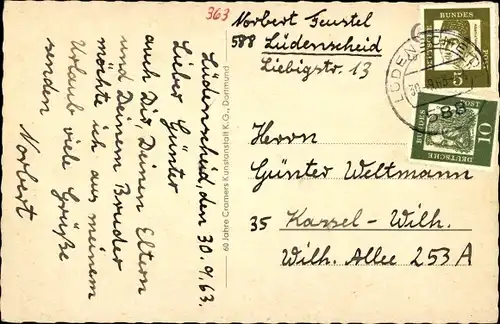 363
Norbert Feustel
588 Lüdenscheid
Liebigstr. 13
Lüdenscheid, den 30.9.63.
Lieber Günter
auch Dir, Deinen Eltern
und Deinem Bruder
möchte ich aus meinem
Urlaub viele Grüße
senden
Norbert
69 Jahre Cramers Kunstanstalt K.G., Dortmund
Herrn
Günter Weltmann
35 Kassel-Wilh.
Wilh. Allee 253A
DEUTSCHE BUNDESPOST
5
DEUTSCHE BUNDESPOST
10
588